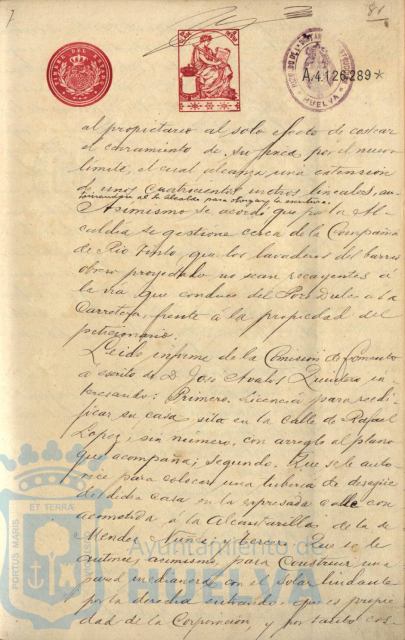 81
A.4.126.289*
HUELVA
al propietario al solo efecto de costear
el cerramiento de su finca por el nuevo
limite, el cual alcanza una extensión
de unos cuatrocientos metros lineales, au-
torizandose al Sr Alcalde para otorgar la escritura.
Asimismo se acordó que por la Al-
caldia se gestione cerca de la Compañia
de Rio Tinto, que los lavaderos del barrio
obrero proyectado no sean recayentes á
la via que conduce del a la
Carretera, frente á la propiedad del
peticionario.
Leido informe de la Comisión de fomento
a escrito de D. José Avalos Quintero in-
teresando: Primero. Licencia para reedi-
ficar su casa sita en la calle de Rafael
Lopez, sin número, con arreglo al plano
que acompaña; segundo. Que se le auto-
rice para colocar una tuberia de desagüe
de dicha casa en la expresada calle con
acometida a la Alcantarilla de la de
Mendez Nuñez y tercero. Que se le
autorice, asimismo, para construir una
pared medianera con el solar lindante
por la derecha entrando, que es propie-
dad de la Corporación, y por tanto cos-
ET TERRA
PORTUS MARIS
Ayuntamiento de
HUELVA